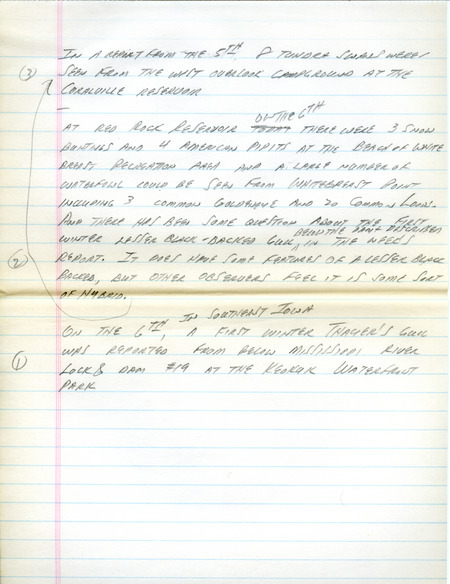 In a report from the 5th, 8 Tundra Swans were
(3) seen from the west overlook campground at the
Coralville Reservoir
—
on the 6th
At Red Rock Reservoir there were 3 Snow
Buntings and 4 American Pipits at the Beach of White
Breast Recreation Area and a large number of
waterfowl could be seen from Whitebreast Point
including 3 Common Goldeneye and 20 Common Loons.
And there has been some question about the first
below the dam described
winter Lesser Black-backed Gull, in the week's
(2) report. It does have some features of a Lesser Black
Backed, but other observers feel it is some sort
of hybrid.
in Southeast Iowa
On the 6th, a first winter Thayer's Gull
(1) was reported from below Mississippi River
Lock & Dam #19 at the Keokuk Waterfront
Park